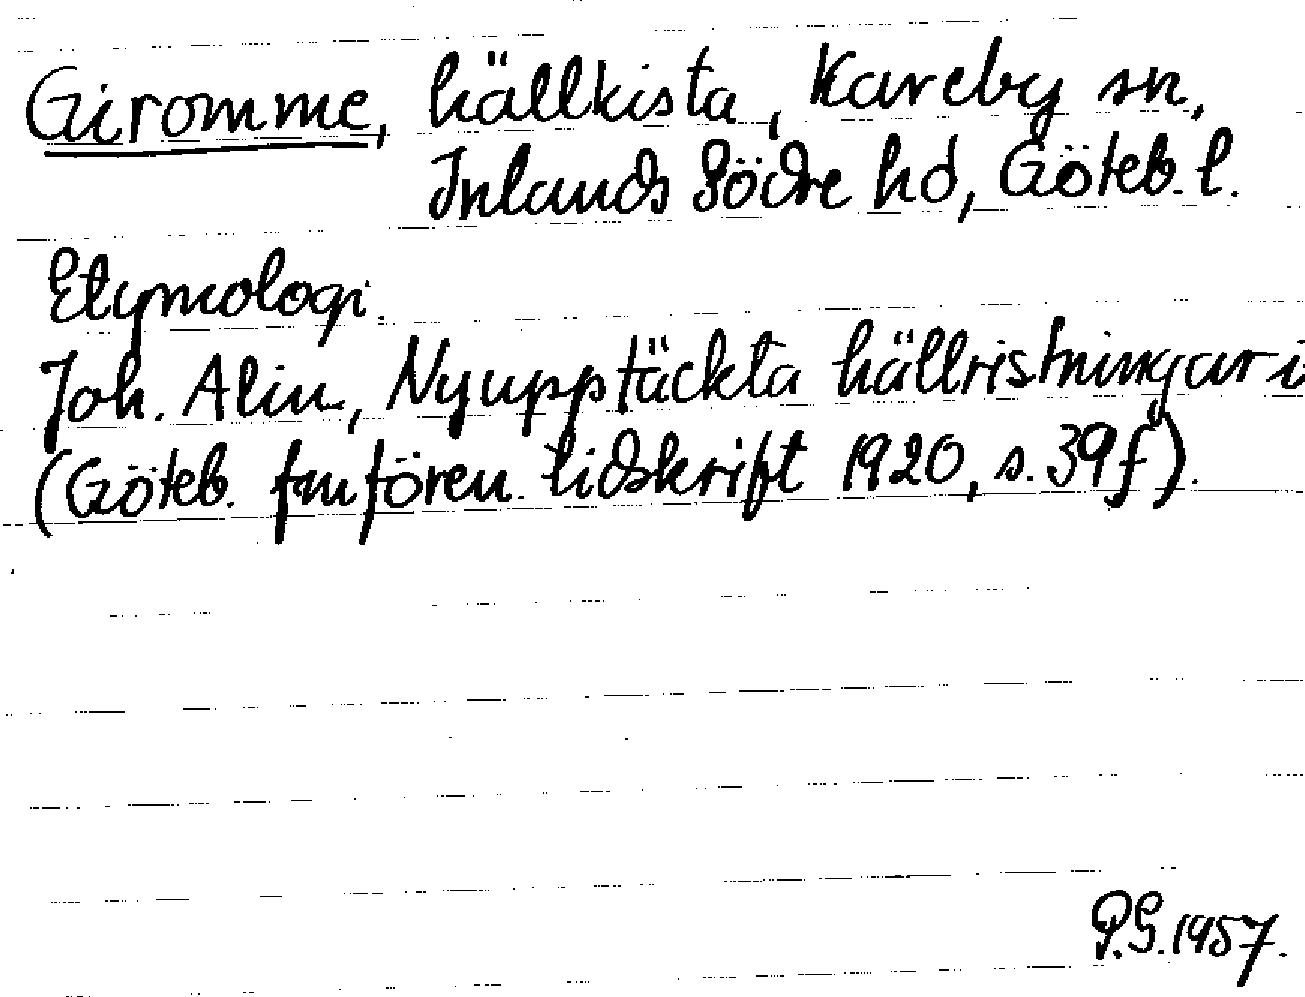 Giromme, hällkista, Kareby sn,
Inlands Södre hd, Göteb. l.
Etymologi.
Joh. Alin, Nyupptäckta hällristningar i
(Göteb. fmfören. tidskrift 1920, s. 39 f).
P.G. 1957.